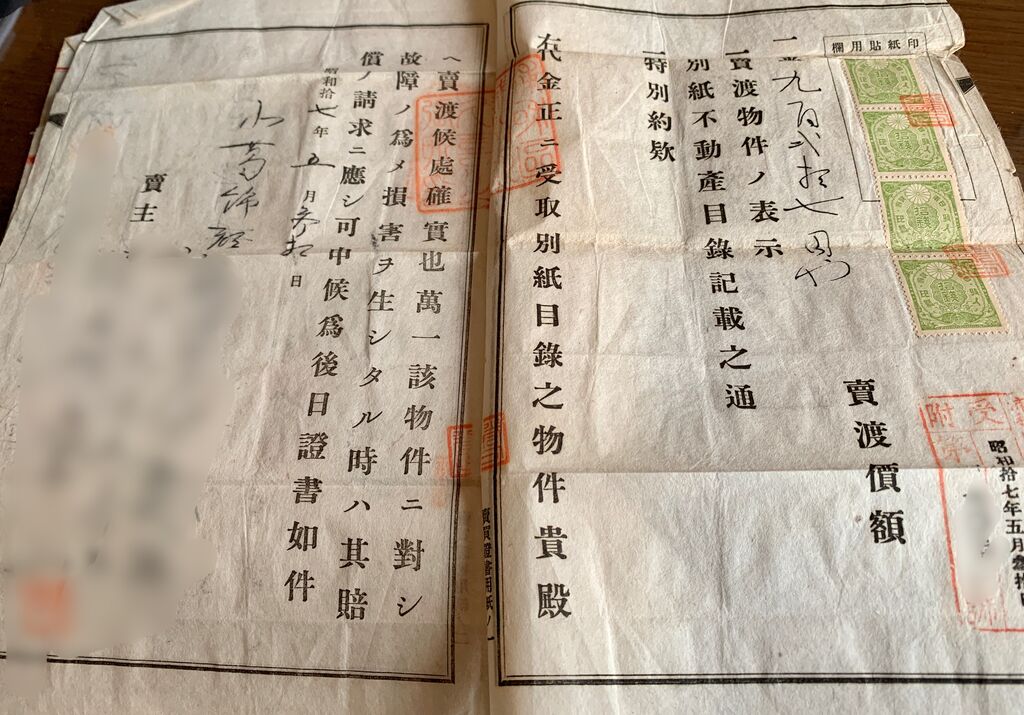 昭和拾七年五月
受附
印紙貼用欄
賣渡價額
九百弐拾七円也
一賣渡物件ノ表示
別紙不動產目錄記載之通
一特別約欵
右代金正ニ受取別紙目錄之物件貴殿
賣買證書用紙ノ一
ヘ賣渡候處確實也萬一該物件ニ對シ
故障ノ爲メ損害ヲ生シタル時ハ其賠
償ノ請求ニ應シ可申候爲後日證書如件
昭和拾七年五月参拾日
賣主